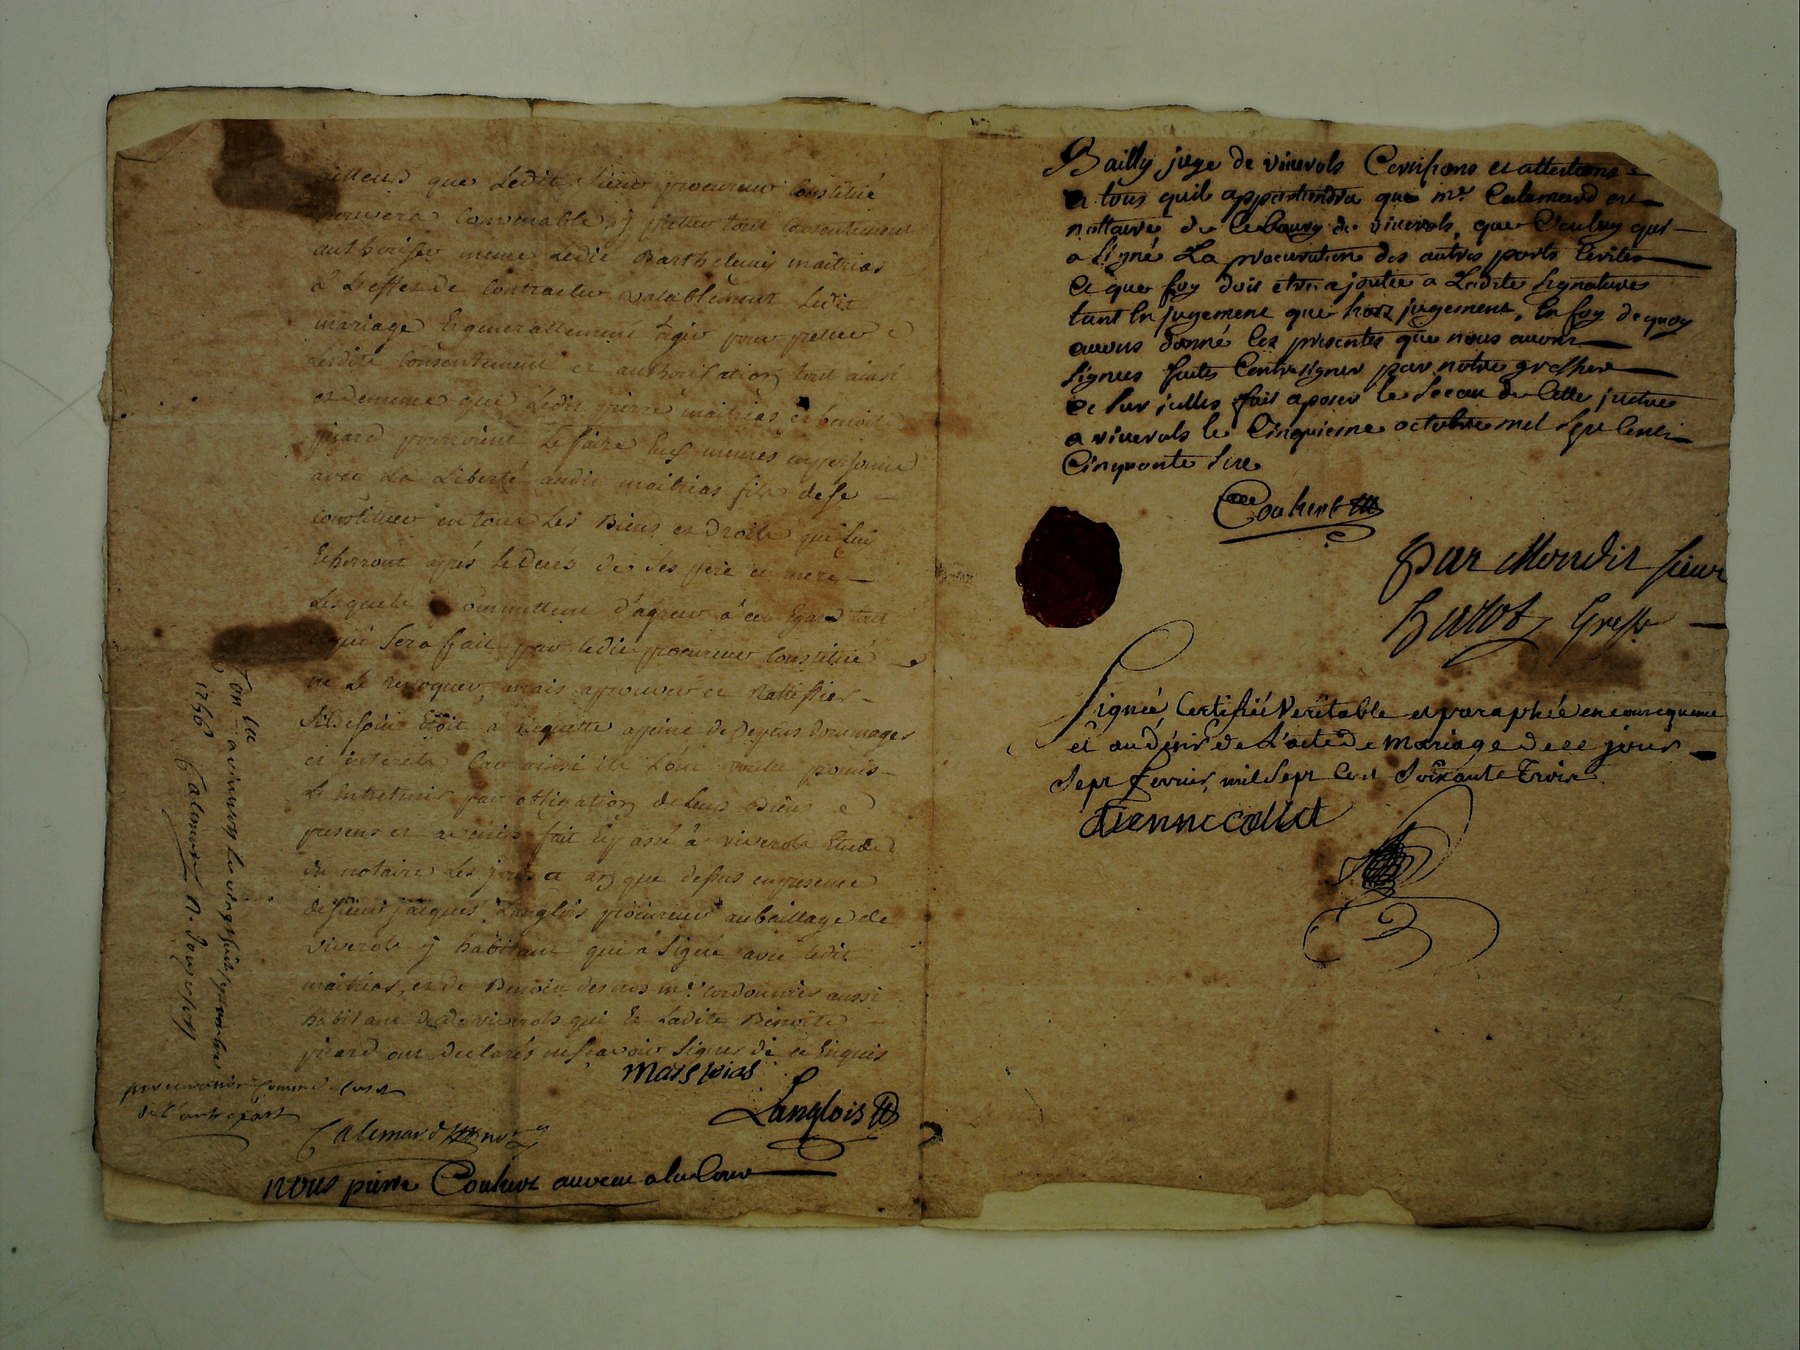 ailleurs que Ledit sieur procureur Constitué
trouvera Convenable, y preter tout Consentement
authoriser meme Ledit Barthelemis maitrias
â L'effet de Contracter valablement Ledit
mariage Et generallement agir pour preter
Lesdits Consentement et authorisation tout ainsi
et dememe que Ledit pierre maitrias et benoite
picard pourroient Le faire Eux memes en personne
avec La Liberté audit maitrias fils de se
Constituer en tous Les Biens et Droits qui Luy
Echerront aprés Le deces de ses pere et mere
Lesquels promettent d'agreer â cet Egard tout
qui sera fait par Ledit procureur Constitué
ne Le revoquer, mais aprouver et Rattiffier
si Besoin Etoit a Requette a peine de Deptus dommages
et interets Car ainsi Ils L'ont voulu promis
L'Entretenir par obligation de Leurs Biens
presens et avenir fait Et passé â viverols Etude
du notaire Les jour et an que dessus en presence
de sieur jacques Langlois procureur au baillage de
viverols y habitant qui â signé avec Ledit
maitrias, et de Benoit desnos me. Cordonnier aussi
habitant dudit viverols qui Et Ladite Benoite
picard ont declarés ne scavoir signer de ce Enquis
Langlois
Calemard
nous pierre Couhert auvocat a la Cour
1756
procuration Comme
de l'autre part
Bailly juge de viverols Certifions et attestons
a tous quil appartiendra que mr. Calemard est
nottaire de Ce bourg de viverols, que C'est luy qui
a signé La procuration des autres parts Ecrites
Et que foy doit etre ajoutée a Ladite signature
tant En jugement que hors jugement, En foy de quoy
avons donné Les presentes que nous avons
signees faites Contresigner par notre greffier
et sur icelles fait aposer le sceau de Cette justice
a viverols le Cinquieme octobre mil sept Cents
Cinquante six
Couhert
Par Mondit sieur
Greff
Signée, Certifié Veritable et paraphée en consequence
et au désir de L'acte de Mariage de ce jour
Sept fevrier, mil Sept Cent Soixante Trois